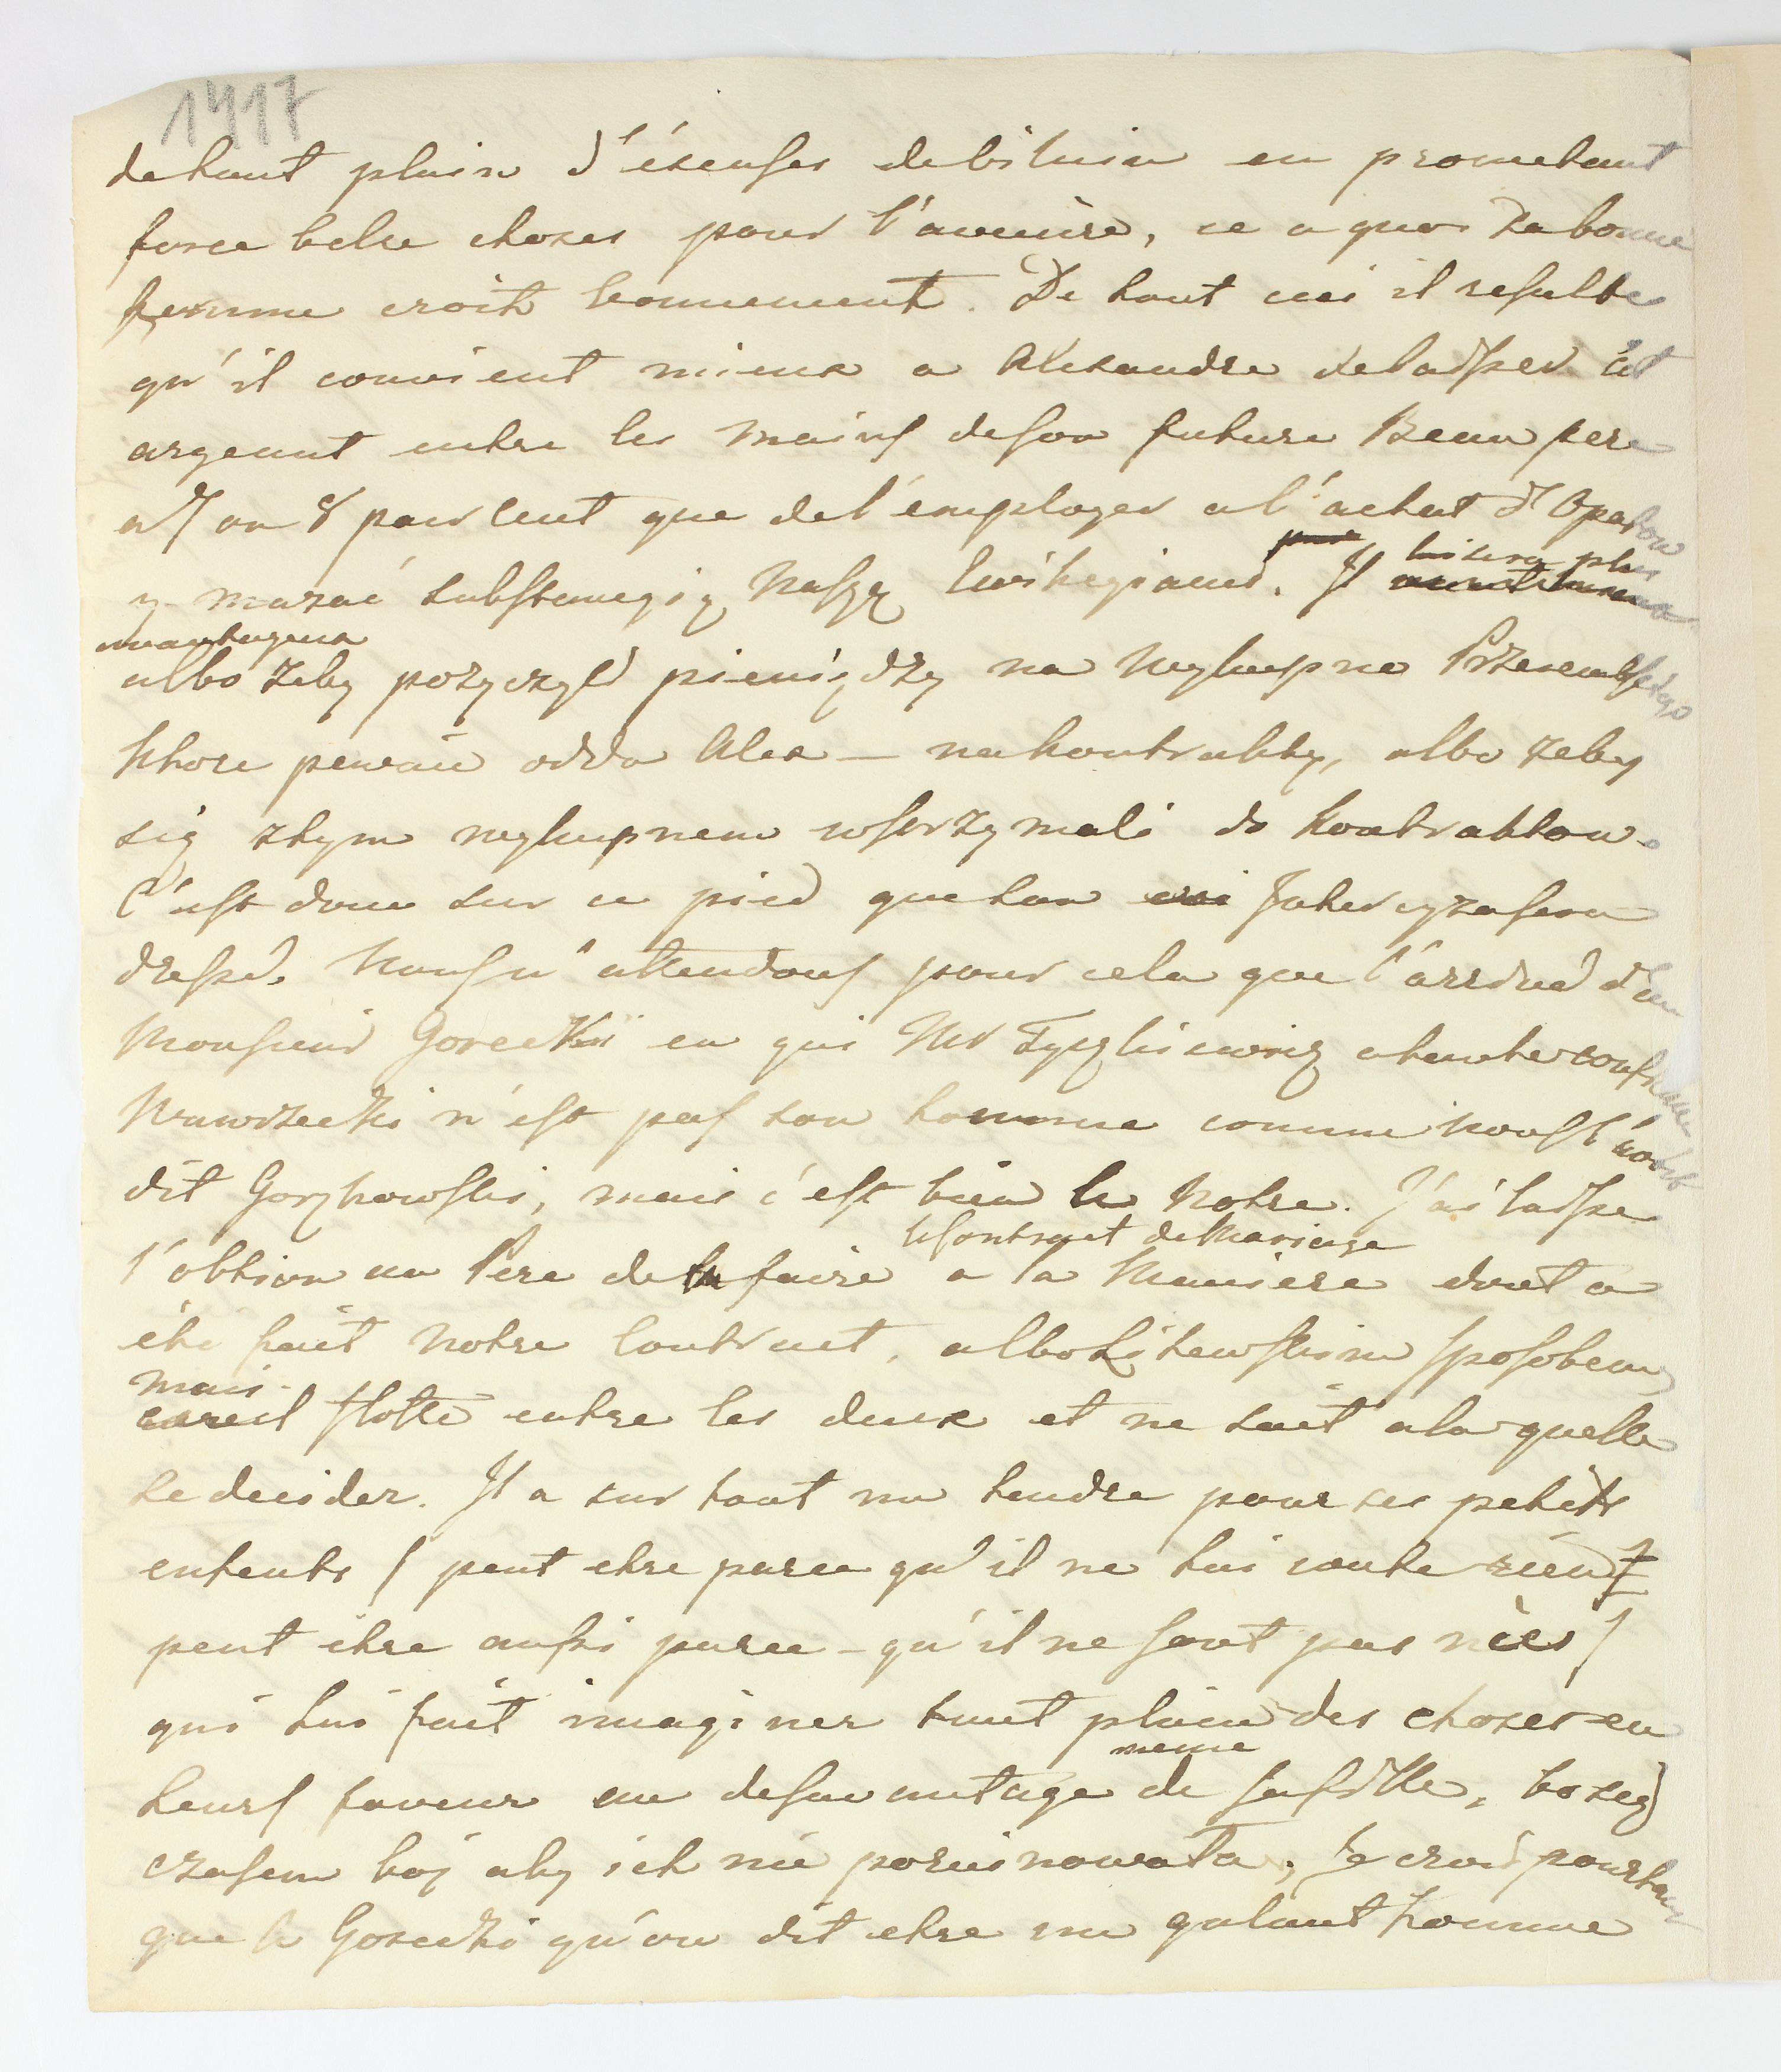 1417
de tout plain d'éxcuses debiluin en prometant
force belse choses pour l'avenire, ce a quoi sa bonne
femme croit bonnement. De tout ceci il resulte
qu'il convient mieux a Alexandre de laisser cet
argeant entre les mains de son future Beau pere
a 7 ou 8 pour Cent que de l'employer a l'achat d'Opatow
y mazać substancyią naszą Ewikcyiami. Il lui sera plus
avantageux
albo żeby pożyczył pieniędzy na wykupno Przerembskiego
ktore pewnie odda Alex – na kontrakty, albo żeby
się z tym wykupnem wstrzymali do kontraktow.
C'est donc sur ce pied que ton Intercyza sera
dressé. Nous n'attendons pour cela que l'arrivé d'un
Monsieur Gorecki en qui Mr Tyszkiewicz a toute confiance
Wawrzecki n'est pas son homme comme nous l'avoit
dit Gorzkowski, mais c'est bien le Notre. J'ai laisse
le Contract de Mariage
l'obtion au Pere de le faire a la Maniere dont a
été fait Notre Contract, albo Litewskim sposobem,
mais
il flotte entre les deux et ne sait a la quelle
se decider. Il a sur tout un tendre pour ses petits
enfents / peut etre parce qu'il ne lui coute rien,
peut etre aussi parce – qu'il ne sont pas nées /
qui lui fait imaginer tout plain des choses en
meme
leurs faveur au desavantage de sa fille, bo się
czasem boi aby ich nie poruinowała; je crois pourtant
que le Gorecki qu'on dit etre un galant homme